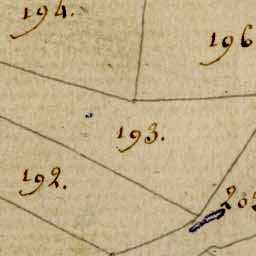 194.
196
193.
192.